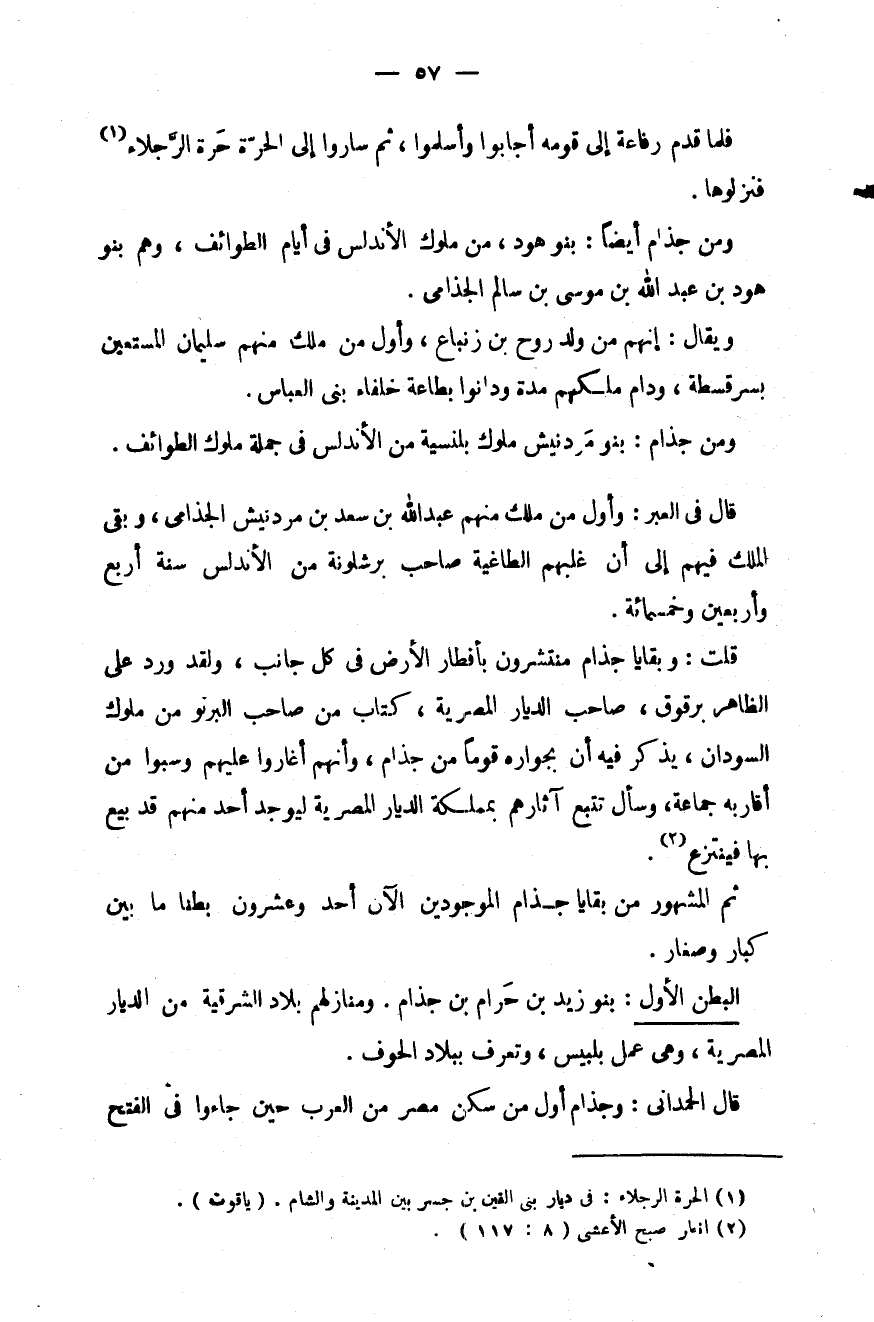 — ٥٧ —
فلما قدم رفاعة إلى قومه أجابوا وأسلموا ، ثم ساروا إلى الحرّة حَرة الرَّجلاء(١)
فنزلوها .
ومن جذام أيضاً : بنو هود ، من ملوك الأندلس فى أيام الطوائف ، وهم بنو
هود بن عبد الله بن موسى بن سالم الجذامى .
ويقال : إنهم من ولد روح بن زنباع ، وأول من ملك منهم سليمان المستعين
بسرقسطة ، ودام ملكهم مدة ودانوا بطاعة خلفاء بنى العباس .
ومن جذام : بنو مَردنيش ملوك بلنسية من الأندلس فى جملة ملوك الطوائف .
قال فى العبر : وأول من ملك منهم عبدالله بن سعد بن مردنيش الجذامى ، وبقى
الملك فيهم إلى أن غلبهم الطاغية صاحب برشلونة من الأندلس سنة أربع
وأربعين وخمسمائة .
قلت : وبقايا جذام منتشرون بأقطار الأرض فى كل جانب ، ولقد ورد على
الظاهر برقوق ، صاحب الديار المصرية ، كتاب من صاحب البرنو من ملوك
السودان ، يذكر فيه أن بجواره قوماً من جذام ، وأنهم أغاروا عليهم وسبوا من
أقاربه جماعة، وسأل تتبع آثارهم بمملكة الديار المصرية ليوجد أحد منهم قد بيع
بها فينتزع(٢) .
ثم المشهور من بقايا جذام الموجودين الآن أحد وعشرون بطنا ما بين
كبار وصغار .
البطن الأول : بنو زيد بن حَرام بن جذام . ومنازلهم ببلاد الشرقية من الديار
المصرية ، وهى عمل بلبيس ، وتعرف ببلاد الحوف .
قال الحمدانى : وجذام أول من سكن مصر من العرب حين جاءوا فى الفتح
(١) الحرة الرجلاء : فى ديار بنى القين بن جسر بين المدينة والشام . ( ياقوت ) .
(٢) انظر صبح الأعشى ( ٨ : ١١٧ ) .